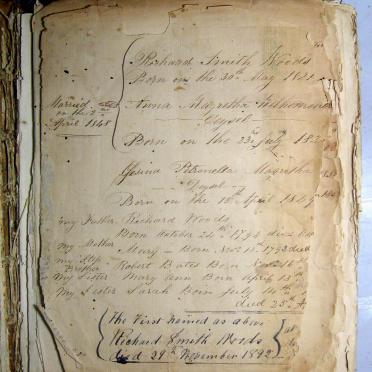 Richard Smith Woods
Born on the 30th May 1821
Married
on the 2nd
April 1845
Anna Magretha
Geysel
Born on the 23rd July
Petronella Magretha
Geysel
Born on the 18th April 1849
My Father Richard Woods
Born October 24th 1794 died
My Mother Mary - Born Novr 15th 1793 died
My Step Brother Robert Bates Born
My Sister Mary Ann Born April 13th
My Sister Sarah Born July 14th
died 25th
The First named as above
Richard Smith Woods
died 29th November 1892